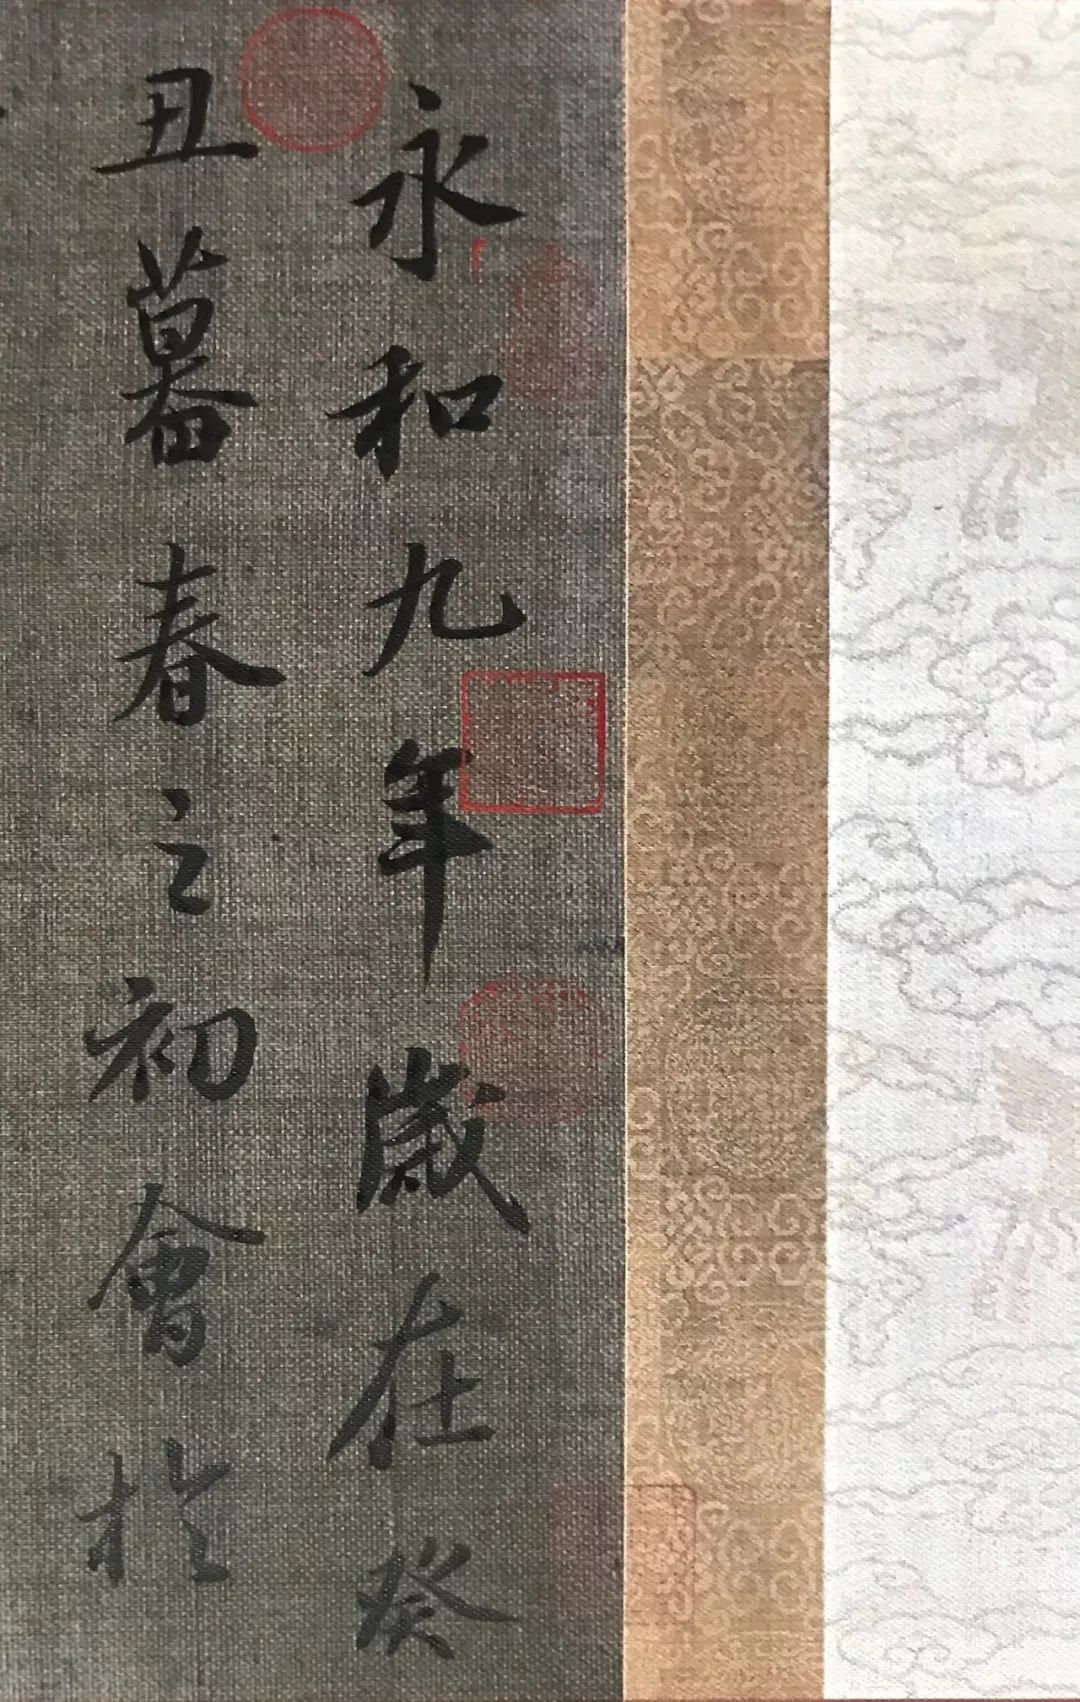 永和九年歲在癸
丑暮春之初會於